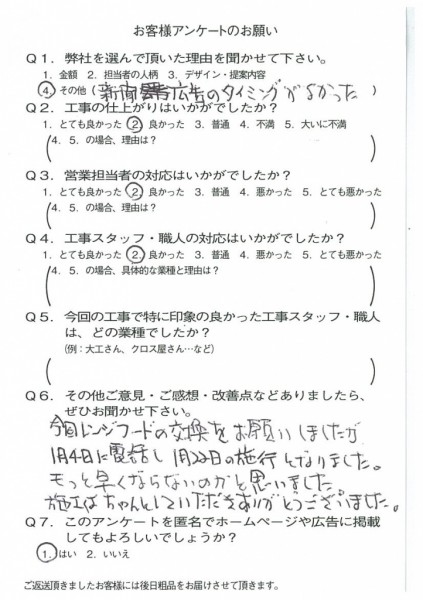 お客様アンケートのお願い
Q1．弊社を選んで頂いた理由を聞かせて下さい。
1．金額 2．担当者の人柄 3．デザイン・提案内容
4．その他（新聞広告のタイミングがよかった）
Q2．工事の仕上がりはいかがでしたか？
1．とても良かった 2．良かった 3．普通 4．不満 5．大いに不満
（4．5．の場合、理由は？）
Q3．営業担当者の対応はいかがでしたか？
1．とても良かった 2．良かった 3．普通 4．悪かった 5．とても悪かった
（4．5．の場合、理由は？）
Q4．工事スタッフ・職人の対応はいかがでしたか？
1．とても良かった 2．良かった 3．普通 4．悪かった 5．とても悪かった
（4．5．の場合、具体的な業種と理由は？）
Q5．今回の工事で特に印象の良かった工事スタッフ・職人
は、どの業種でしたか？
（例：大工さん、クロス屋さん…など）
Q6．その他ご意見・ご感想・改善点などありましたら、
ぜひお聞かせ下さい。
今回レンジフードの交換をお願いしましたが
1月4日に電話し1月22日の施行となりました。
もっと早くならないのかと思いました。
施工はちゃんとしていただきありがとうございました。
Q7．このアンケートを匿名でホームページや広告に掲載
してもよろしいでしょうか？
1．はい 2．いいえ
ご返送頂きましたお客様には後日粗品をお届けさせて頂きます。